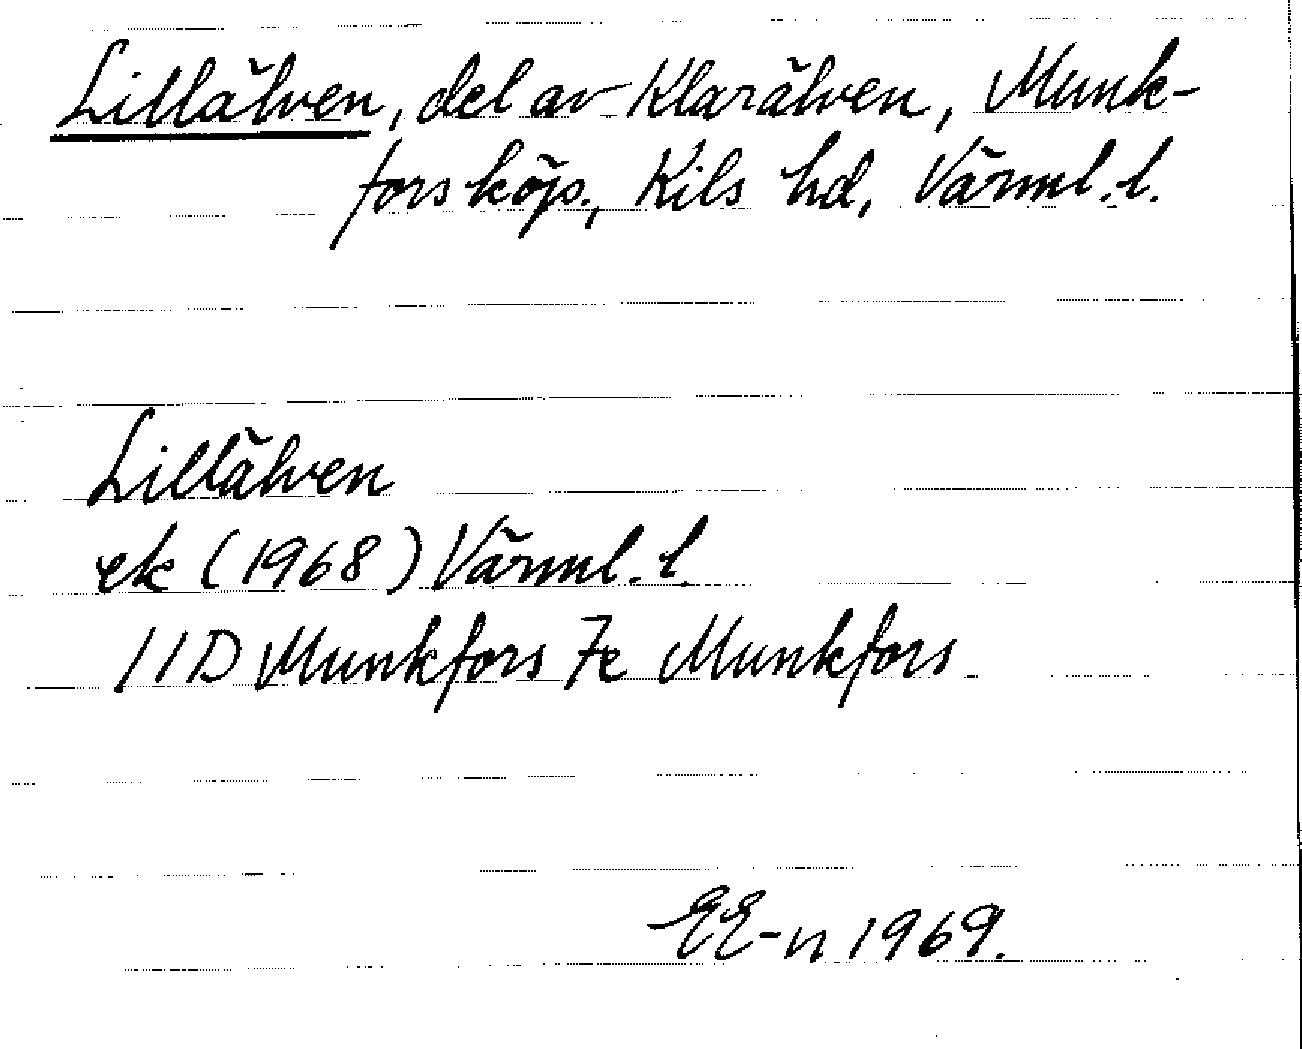 Lillälven, del av Klarälven, Munk-
fors köp., Kils hd, Värml. l.
Lillälven
ek (1968) Värml. l.
11D Munkfors 7e Munkfors
EE-n 1969.